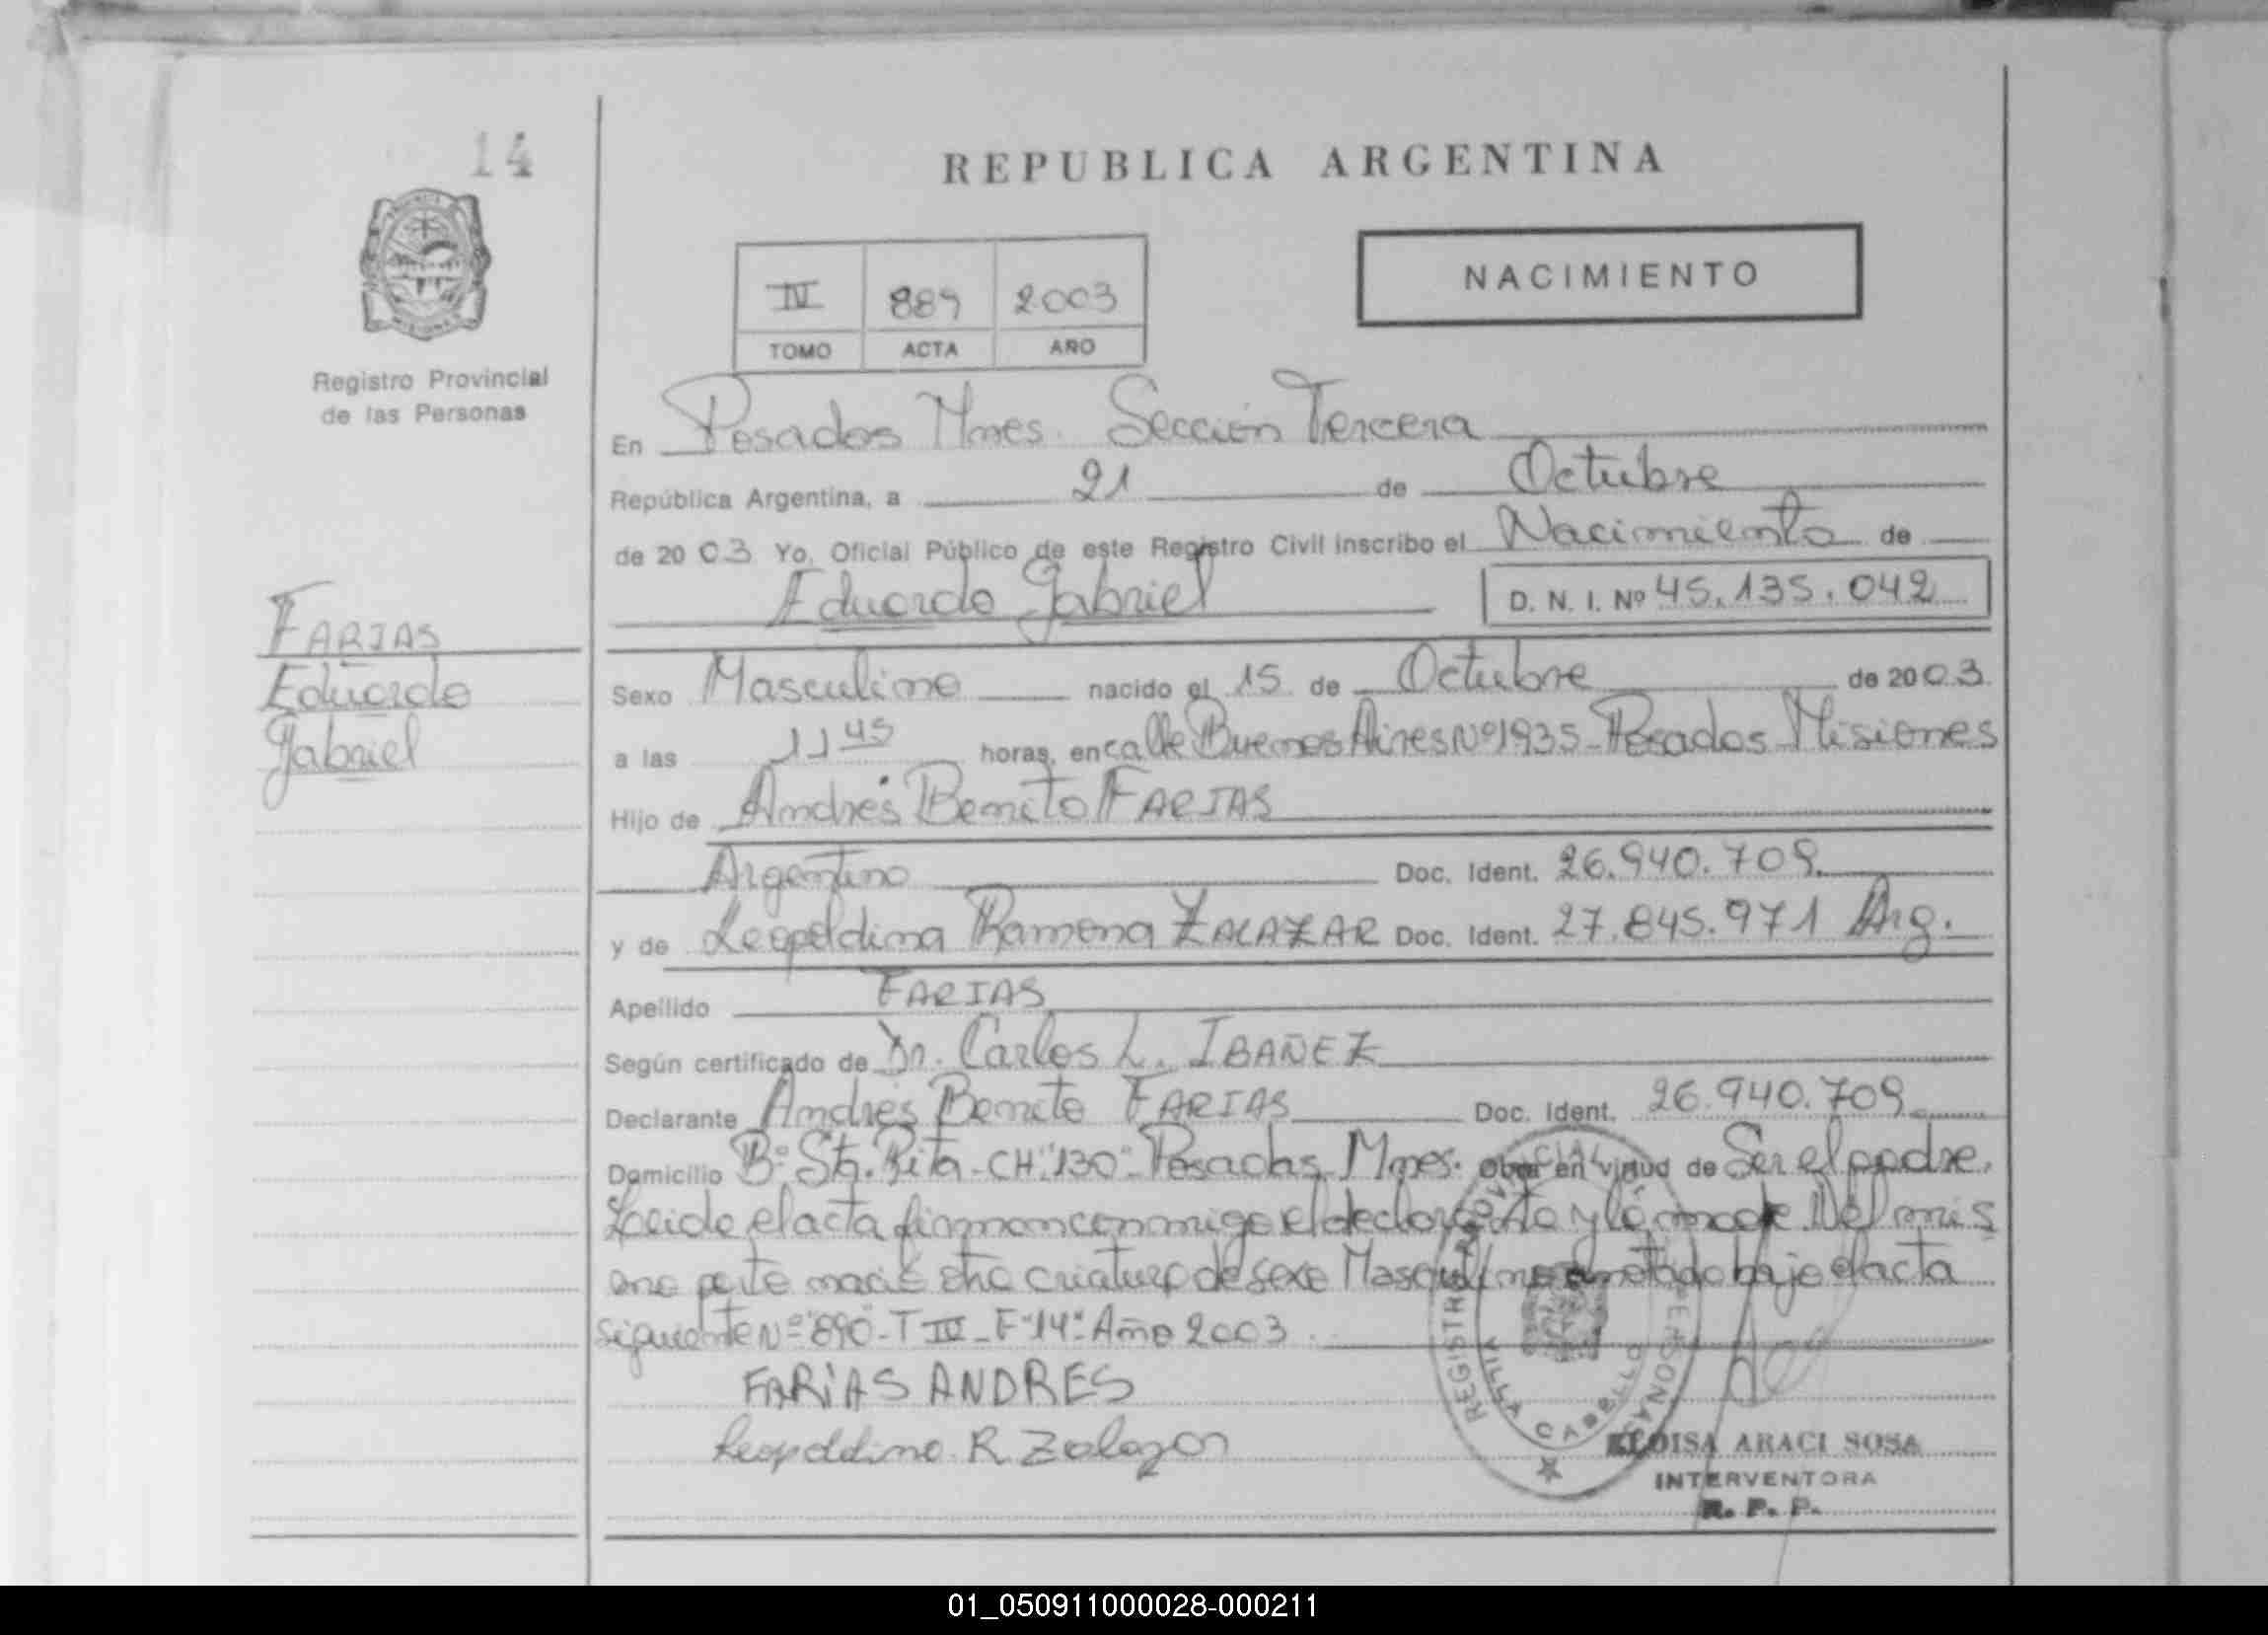 14
REPUBLICA ARGENTINA
NACIMIENTO
IV 889 2003
TOMO ACTA AÑO
Registro Provincial
de las Personas
En Posadas Mnes. Sección Tercera
República Argentina, a 21 de Octubre
de 2003 Yo, Oficial Público de este Registro Civil inscribo el Nacimiento de
Eduardo Gabriel D. N. I. Nº 45.135.042
FARIAS
Eduardo
Gabriel
Sexo Masculino nacido el 15 de Octubre de 2003.
a las 11 45 horas, en calle Buenos Aires Nº 1935 - Posadas Misiones
Hijo de Andrés Benito FARIAS
Argentino Doc. Ident. 26.940.709.
y de Leopoldina Ramona ZALAZAR Doc. Ident. 27.845.971 Arg.
Apellido FARIAS
Según certificado de Dr. Carlos L. IBAÑEZ
Declarante Andrés Benito FARIAS Doc. Ident. 26.940.709
Domicilio Bº Sta. Rita - CH "130" - Posadas Mnes. obra en virtud de Ser el padre.
Leida el acta firman conmigo el declarante y la madre. Del mis
mo parto nació otra criatura de sexo Masculino anotado bajo el acta
siguiente Nº "890" - T IV - F "14" Año 2003.
FARiAS ANDRES
Leopoldina R. Zalazar
REGISTRO PROVINCIAL PERSONAS
VILLA CABELLO
ELOISA ARACI SOSA
INTERVENTORA
R. P. P.
01_050911000028-000211